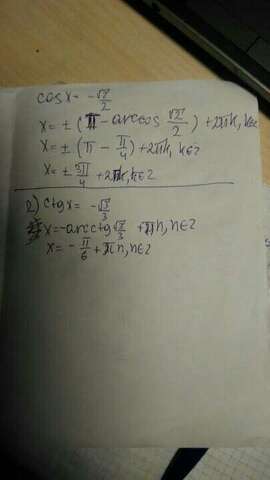 cosx = -√2/2
x = ± (π - arccos √2/2) + 2πk, k∈Z
x = ± (π - π/4) + 2πk, k∈Z
x = ± 3π/4 + 2πk, k∈Z
2) ctgx = -√3/3
x = -arcctg √3/3 + πn, n∈Z
x = -π/6 + πn, n∈Z